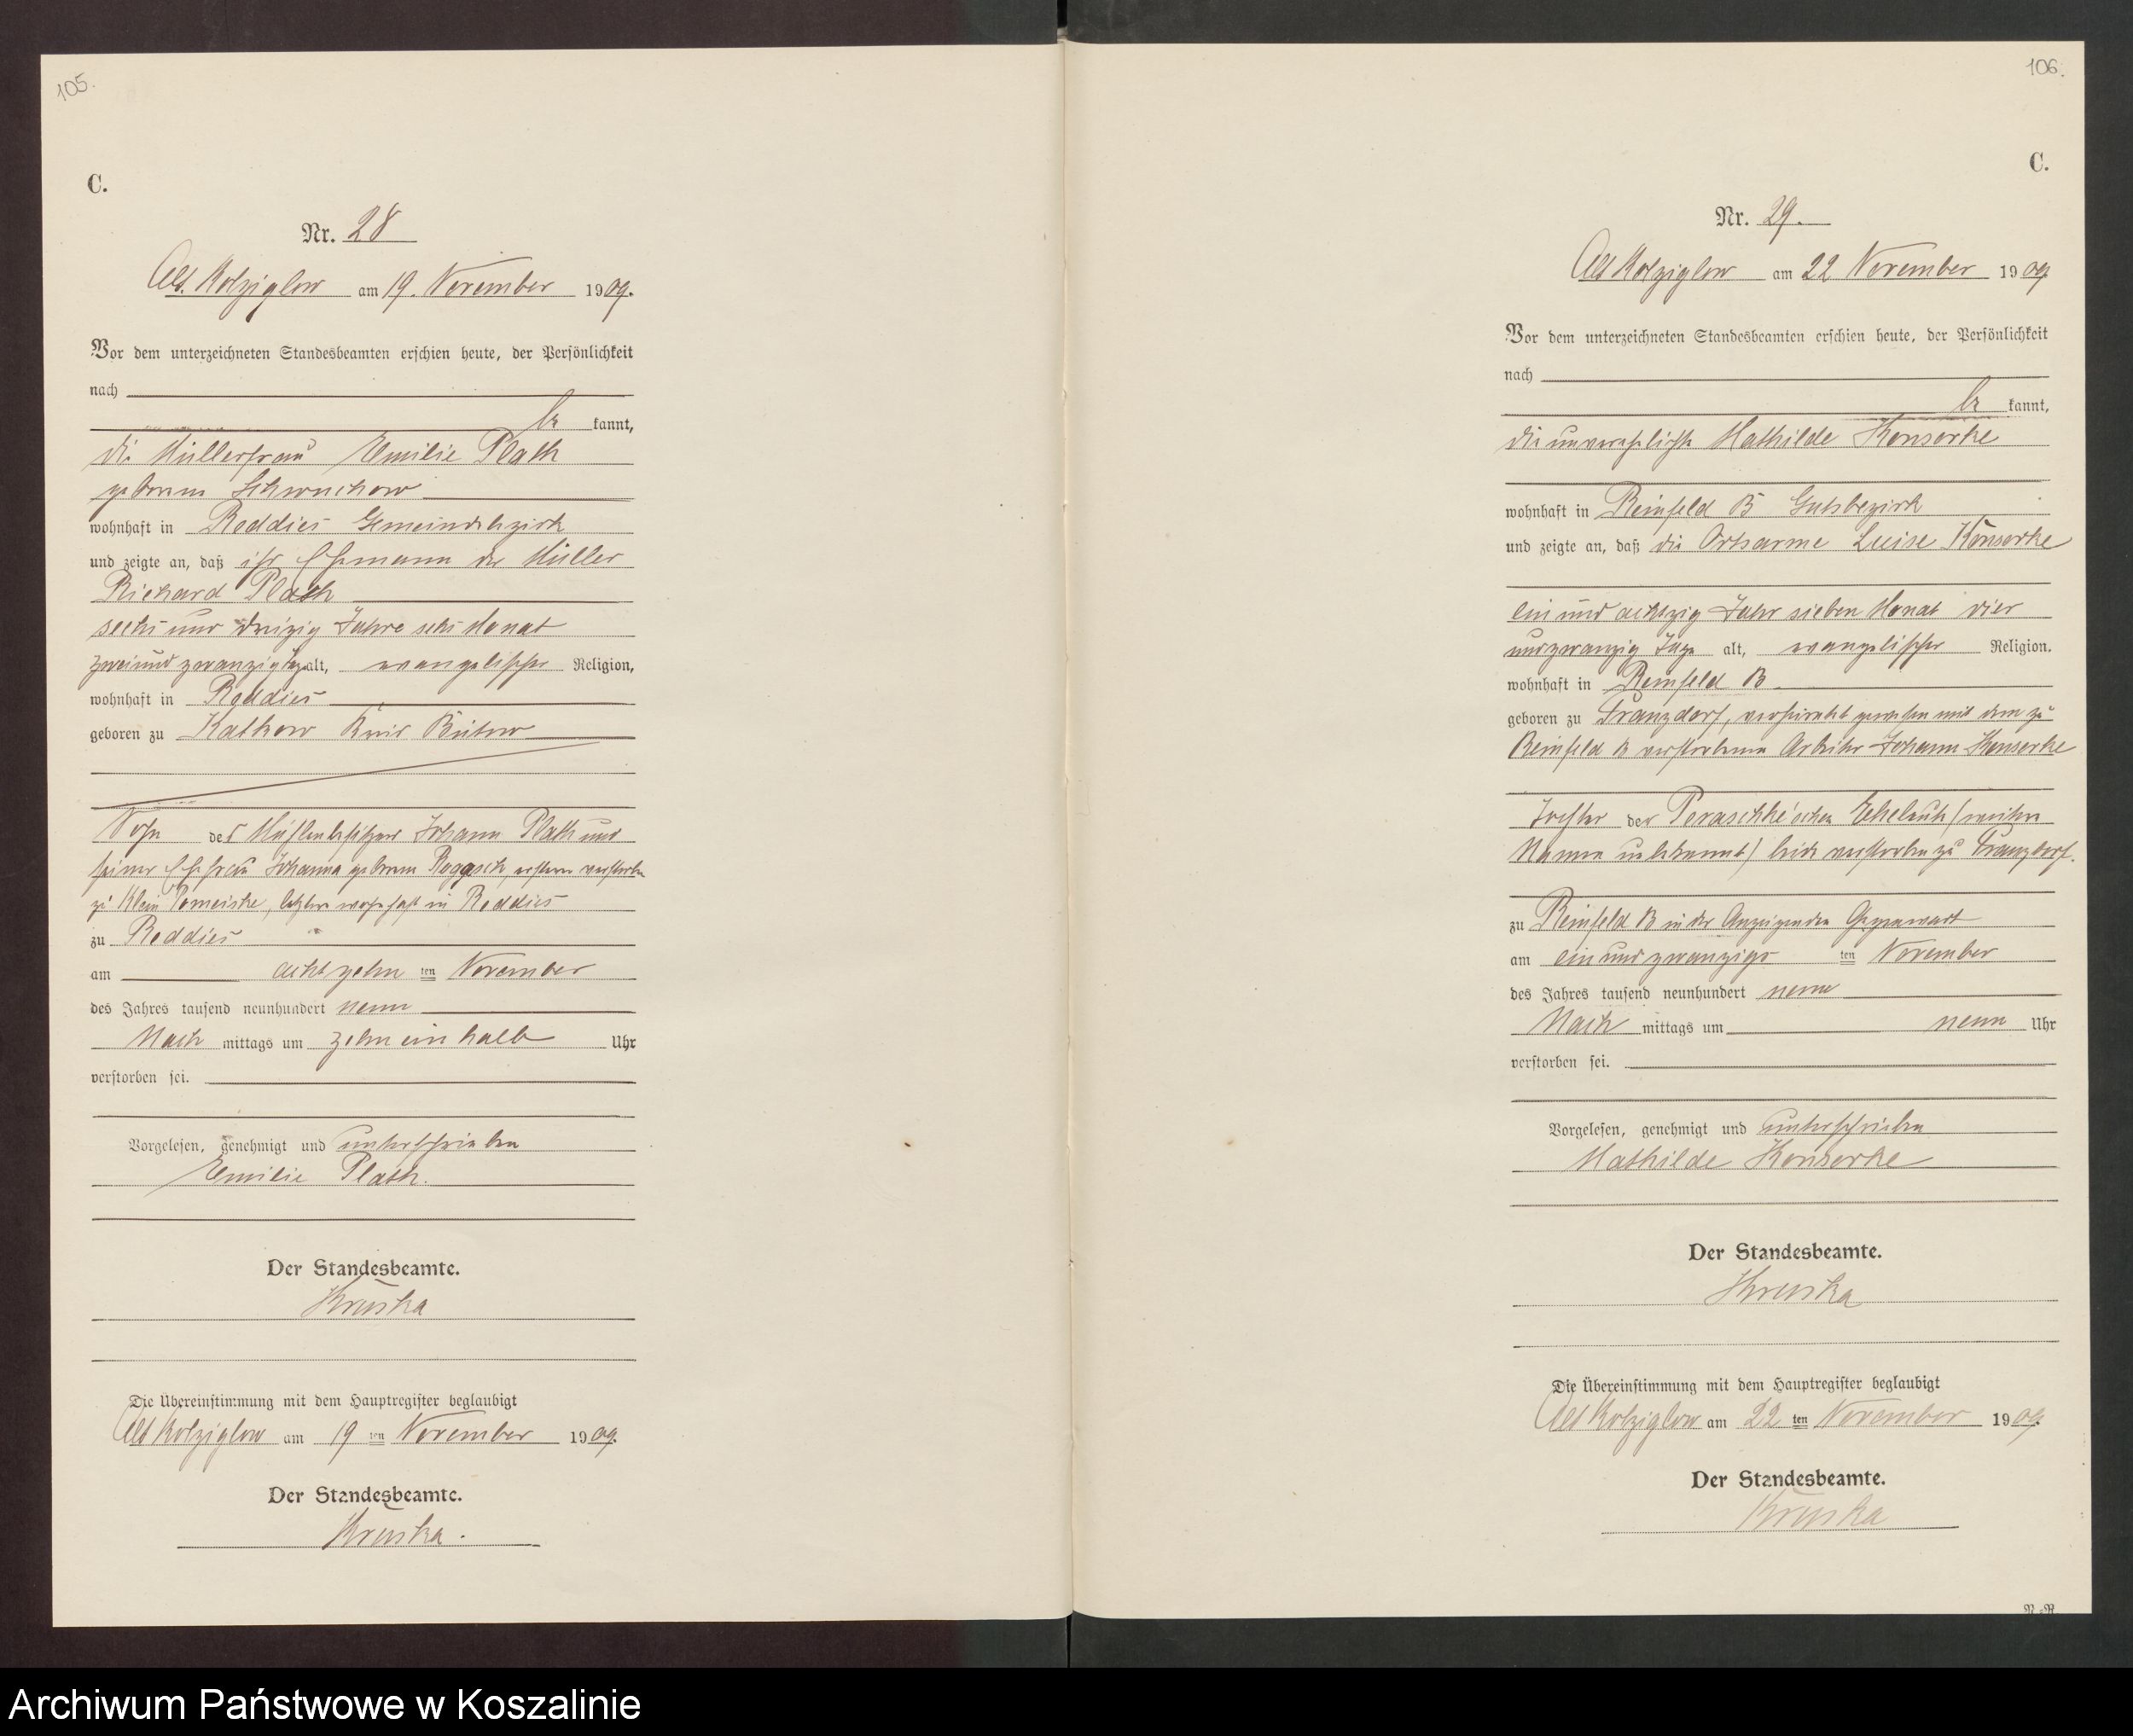 105.
C.
Nr. 28
Alt. Kolziglow am 19. November 1909.
Vor dem unterzeichneten Standesbeamten erschien heute, der Persönlichkeit
nach
be kannt,
die Müllerfrau Emilie Plath
geborene Schwuchow
wohnhaft in Reddies Gemeindebezirk
und zeigte an, daß ihr Ehemann der Müller
Richard Plath
sechs und dreizig Jahre sechs Monat
zweiund zwanzig Tage alt, evangelischer Religion,
wohnhaft in Reddies
geboren zu Kathkow Kreis Bütow
Sohn des Mühlenbesitzers Johann Plath und
seiner Ehefrau Johanna geborene Roggasch, ersterer verstorben
zu Klein Pomeiske, letztere wohnhaft in Reddies
zu Reddies
am achtzehn ten November
des Jahres tausend neunhundert neun
Nach mittags um zehn ein halb Uhr
verstorben sei.
Vorgelesen, genehmigt und unterschrieben
Emilie Plath.
Der Standesbeamte.
Kruska
Die Übereinstimmung mit dem Hauptregister beglaubigt
Alt Kolziglow am 19 ten November 1909.
Der Standesbeamte.
Kruska.
106.
C.
Nr. 29.
Alt Kolziglow am 22 November 1909
Vor dem unterzeichneten Standesbeamten erschien heute, der Persönlichkeit
nach
be kannt,
die unverehelichte Mathilde Konsorke
wohnhaft in Reinfeld B Gutsbezirk
und zeigte an, daß die Ortsarme Luise Konsorke
ein und achtzig Jahr sieben Monat vier
undzwanzig Tage alt, evangelischer Religion.
wohnhaft in Reinfeld B
geboren zu Franzdorf, verheiratet gewesen mit dem zu
Reinfeld B verstorbenen Arbeiter Johann Konsorke
Tochter der Peraschke'schen Eheleute (weitere
Namen unbekannt) beide verstorben zu Franzdorf.
zu Reinfeld B in der Anzeigenden Gegenwart
am ein und zwanzigs ten November
des Jahres tausend neunhundert neun
Nach mittags um neun Uhr
verstorben sei.
Vorgelesen, genehmigt und unterschrieben
Mathilde Konsorke
Der Standesbeamte.
Kruska
Die Übereinstimmung mit dem Hauptregister beglaubigt
Alt Kolziglow am 22 ten November 1909.
Der Standesbeamte.
Kruska
Archiwum Państwowe w Koszalinie